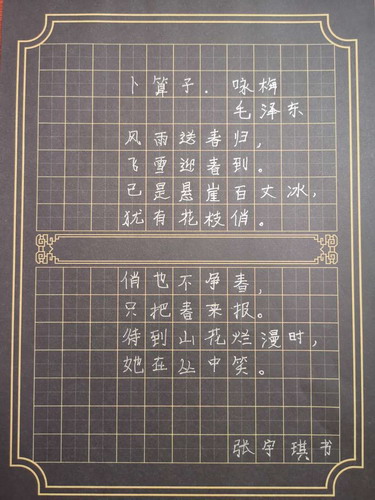 卜算子.咏梅
毛泽东
风雨送春归，
飞雪迎春到。
已是悬崖百丈冰，
犹有花枝俏。
俏也不争春，
只把春来报。
待到山花烂漫时，
她在丛中笑。
张宇琪书